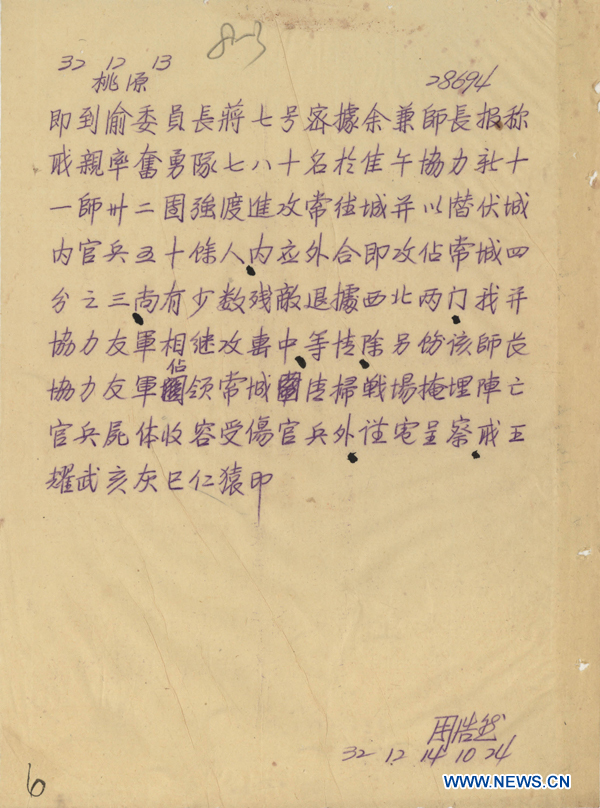 8-3
32 12 13
桃源 28694
即到渝委員長蔣七号密據余兼師長报称
戒親率奮勇隊七八十名於佳午協力新十
一師卅二團強度進攻常德城并以替伏城
内官兵五十條人内应外合即攻佔常城四
分之三尚有少数残敵退據西北两门我并
協力友軍相继攻击中等情除另份该師長
協力友軍佔领常城清掃戦場掩埋陣亡
官兵屍体收容受傷官兵外谨电呈察戒王
耀武亥灰巳仁猿印
32 12 14 10 24
6
WWW.NEWS.CN